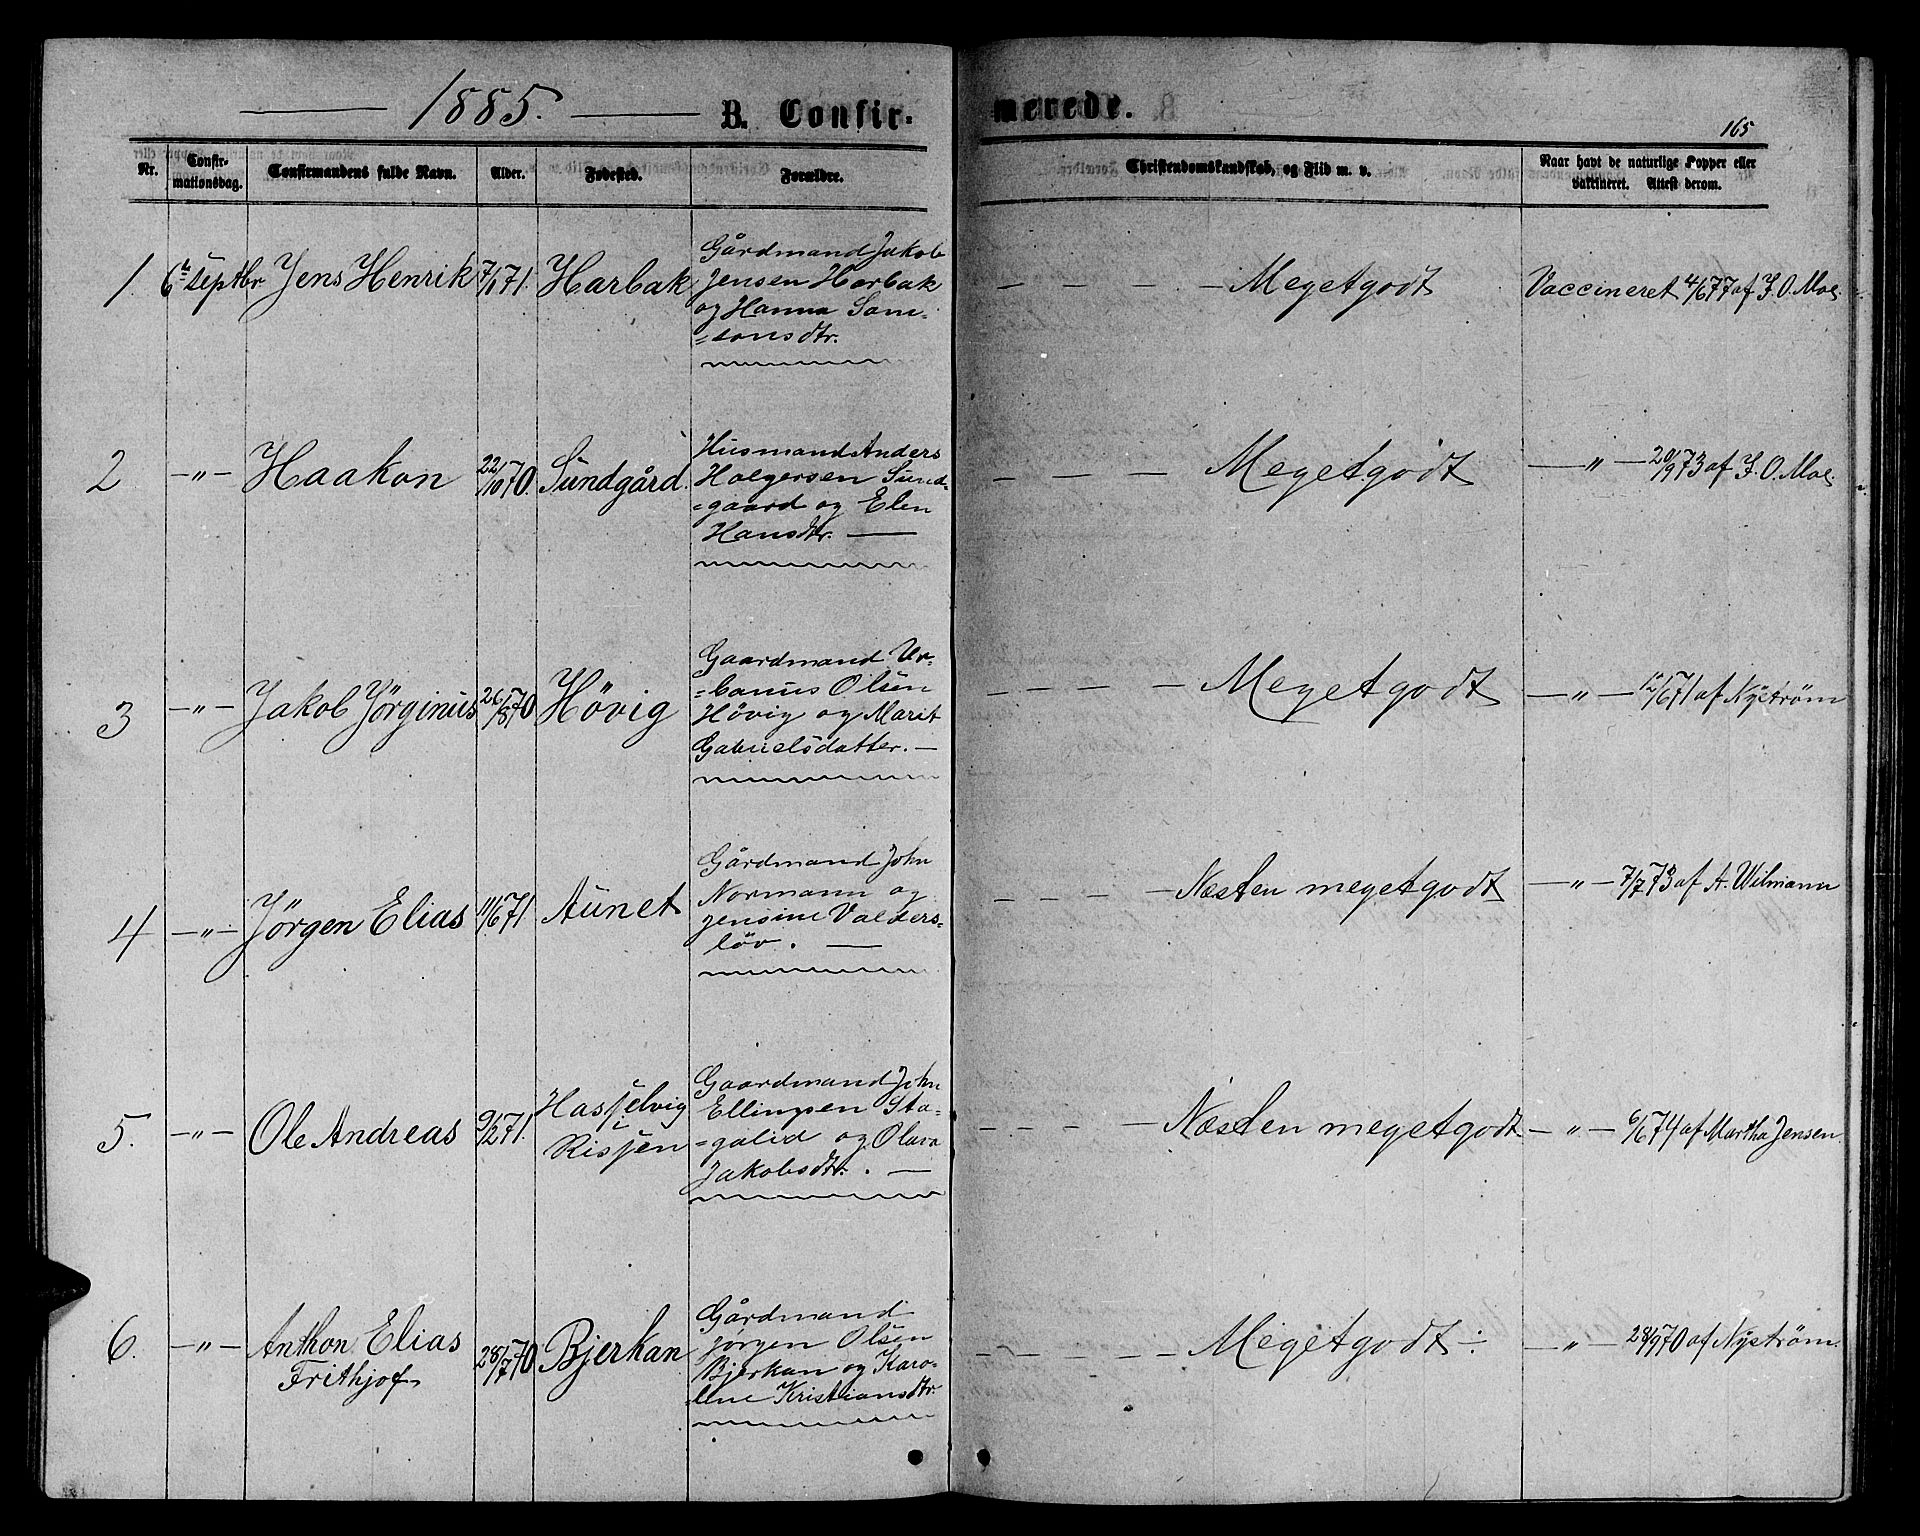 1885. B. Confir-
merede.
165
Nr. Confir-mationsdag. Confirmandens fulde Navn. Alder. Fødested. Forældre. Christendomskundskab, og Flid m. v. Naar havt de naturlige Kopper eller vakcineret. Attest derom.
1. 6te septbr Jens Henrik 7/1 71. Harbak Gårdmand Jakob
Jensen Harbak
og Hanna Sam=
=sonsdtr.
— — — — Megetgodt Vaccineret 4/6 77 af J. O. Moe
2 —"— Haakon 22/10 70. Sundgård. Husmand Anders
Holgersen Sund=
=gaard og Elen
Hansdtr. —
— — — — Megetgodt —"— 20/9 73 af J. O. Moe
3 —"— Jakob Jörginus 26/8 70 Hövig Gaardmand Ur=
=banus Olsen
Hövig og Marit
Gabrielsdatter. —
— — — — Megetgodt —"— 12/6 71 af Nyström
4 —"— Jörgen Elias 11/6 71 Aunet Gårdmand John
Normann og
Jensine Valders=
löv. —
— — — — Næsten megetgodt —"— 7/7 73 af A. Wilmann
5. —"— Ole Andreas 9/2 71. Hasfjelvig
Risjen
Gaardmand John
Ellingsen Sta=
=galid og Olava
Jakobsdtr. —
— — — — Næsten megetgodt —"— 6/6 74 af Martha Jensen.
6. —"— Anthon Elias
Frithjof
28/7 70 Bjerkan Gårdmand
Jörgen Olsen
Bjerkan og Karo=
=line Kristiansdtr.
— — — — Megetgodt ÷ —"— 28/9 70 af Nyström.